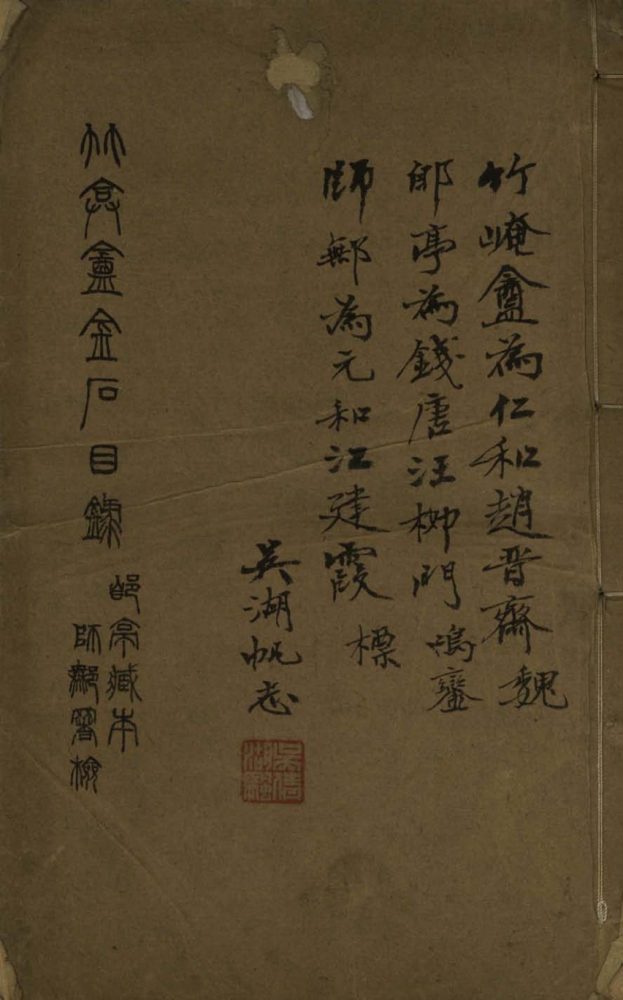 竹崦盦為仁和趙晋齋魏
郋亭為錢唐汪柳門鳴鑾
師鄦為元和江建霞標
吳湖帆志
竹弇盦金石目錄
郋亭臧本
師鄦署檢